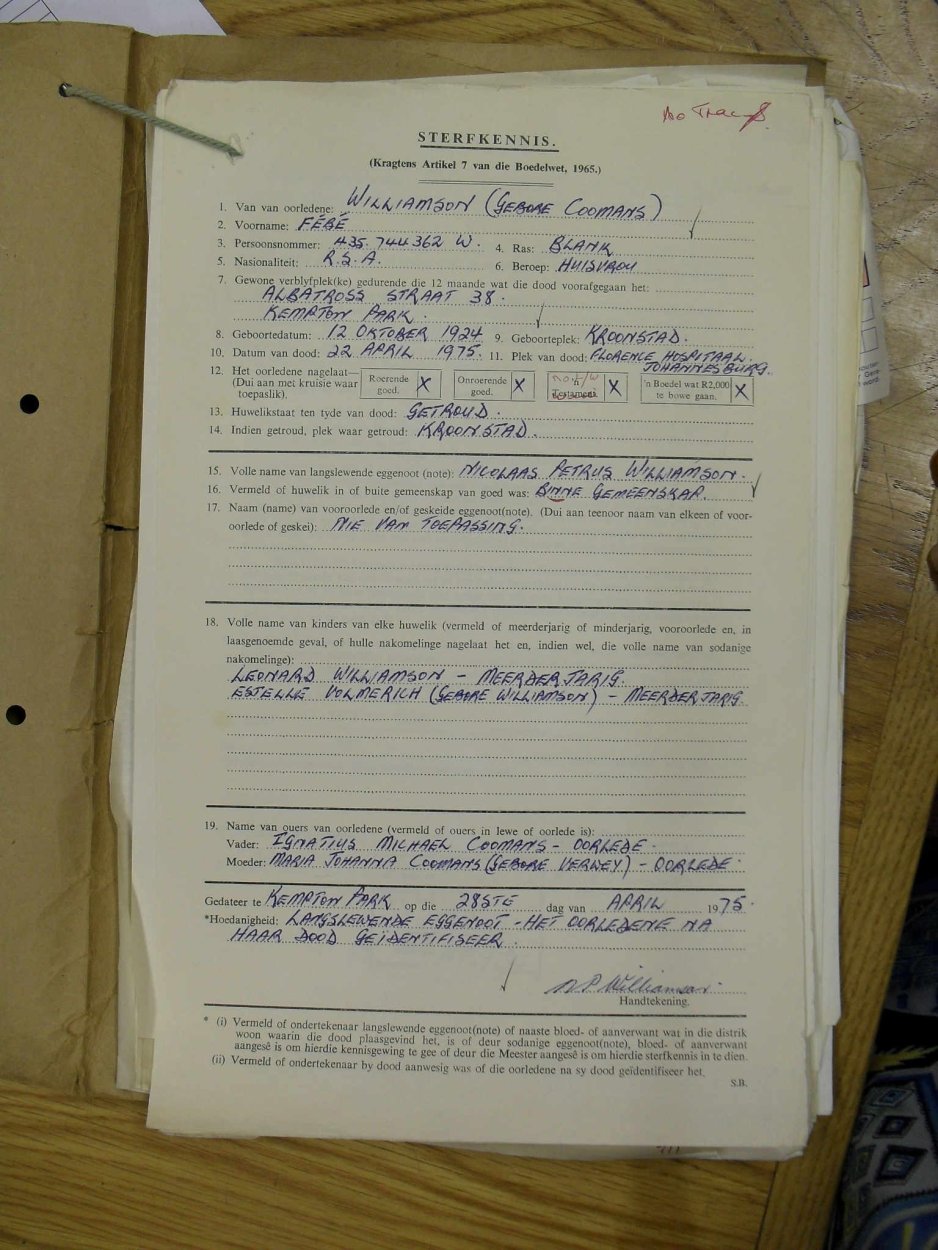 STERFKENNIS.
(Kragtens Artikel 7 van die Boedelwet, 1965.)
1. Van van oorledene: WILLIAMSON (GEBORE COOMANS)
2. Voorname: FÉBÉ
3. Persoonsnommer: 435 744362 W. 4. Ras: BLANK
5. Nasionaliteit: R.S.A. 6. Beroep: HUISVROU
7. Gewone verblyfplek(ke) gedurende die 12 maande wat die dood voorafgegaan het:
ALBATROSS STRAAT 38.
KEMPTON PARK.
8. Geboortedatum: 12 OKTOBER 1924 9. Geboorteplek: KROONSTAD.
10. Datum van dood: 22 APRIL 1975. 11. Plek van dood: FLORENCE HOSPITAAL.
JOHANNESBURG.
12. Het oorledene nagelaat—
(Dui aan met kruisie waar
toepaslik).
Roerende
goed. X
Onroerende
goed. X
'n
Testament. X
'n Boedel wat R2,000
te bowe gaan. X
13. Huwelikstaat ten tyde van dood: GETROUD.
14. Indien getroud, plek waar getroud: KROONSTAD.
15. Volle name van langslewende eggenoot (note): NICOLAAS PETRUS WILLIAMSON.
16. Vermeld of huwelik in of buite gemeenskap van goed was: BINNE GEMEENSKAP.
17. Naam (name) van vooroorlede en/of geskeide eggenoot(note). (Dui aan teenoor naam van elkeen of voor-
oorlede of geskei): NIE VAN TOEPASSING.
18. Volle name van kinders van elke huwelik (vermeld of meerderjarig of minderjarig, vooroorlede en, in
laasgenoemde geval, of hulle nakomelinge nagelaat het en, indien wel, die volle name van sodanige
nakomelinge):
LEONARD WILLIAMSON - MEERDERJARIG.
ESTELLE VOLMERICH (GEBORE WILLIAMSON) - MEERDERJARIG.
19. Name van ouers van oorledene (vermeld of ouers in lewe of oorlede is):
Vader: IGNATIUS MICHAEL COOMANS - OORLEDE.
Moeder: MARIA JOHANNA COOMANS (GEBORE VERWEY) - OORLEDE.
Gedateer te KEMPTON PARK op die 28STE dag van APRIL 1975.
*Hoedanigheid: LANGSLEWENDE EGGENOOT - HET OORLEDENE NA
HAAR DOOD GEÏDENTIFISEER.
N P Williamson.
Handtekening.
* (i) Vermeld of ondertekenaar langslewende eggenoot(note) of naaste bloed- of aanverwant wat in die distrik
woon waarin die dood plaasgevind het, is of deur sodanige eggenoot(note), bloed- of aanverwant
aangesê is om hierdie kennisgewing te gee of deur die Meester aangesê is om hierdie sterfkennis in te dien.
(ii) Vermeld of ondertekenaar by dood aanwesig was of die oorledene na sy dood geïdentifiseer het.
S.B.